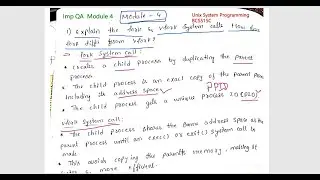 Imp QA Module 4
Module - 4
Unix System Programming
BCS515C
1) explain the fork & vfork system calls. How does
fork differ from vfork?
→ fork System call:
• creates a child process by duplicating the parent
process.
• The child process is an exact copy of the parent process
Including its address space.
PPID
• The child process gets a unique process ID (PID)
vfork System call:
• The child process shares the same address space as the
parent process until an exec() or exit() system call is
made.
• This avoids copying the parent's memory, making it
more efficient.